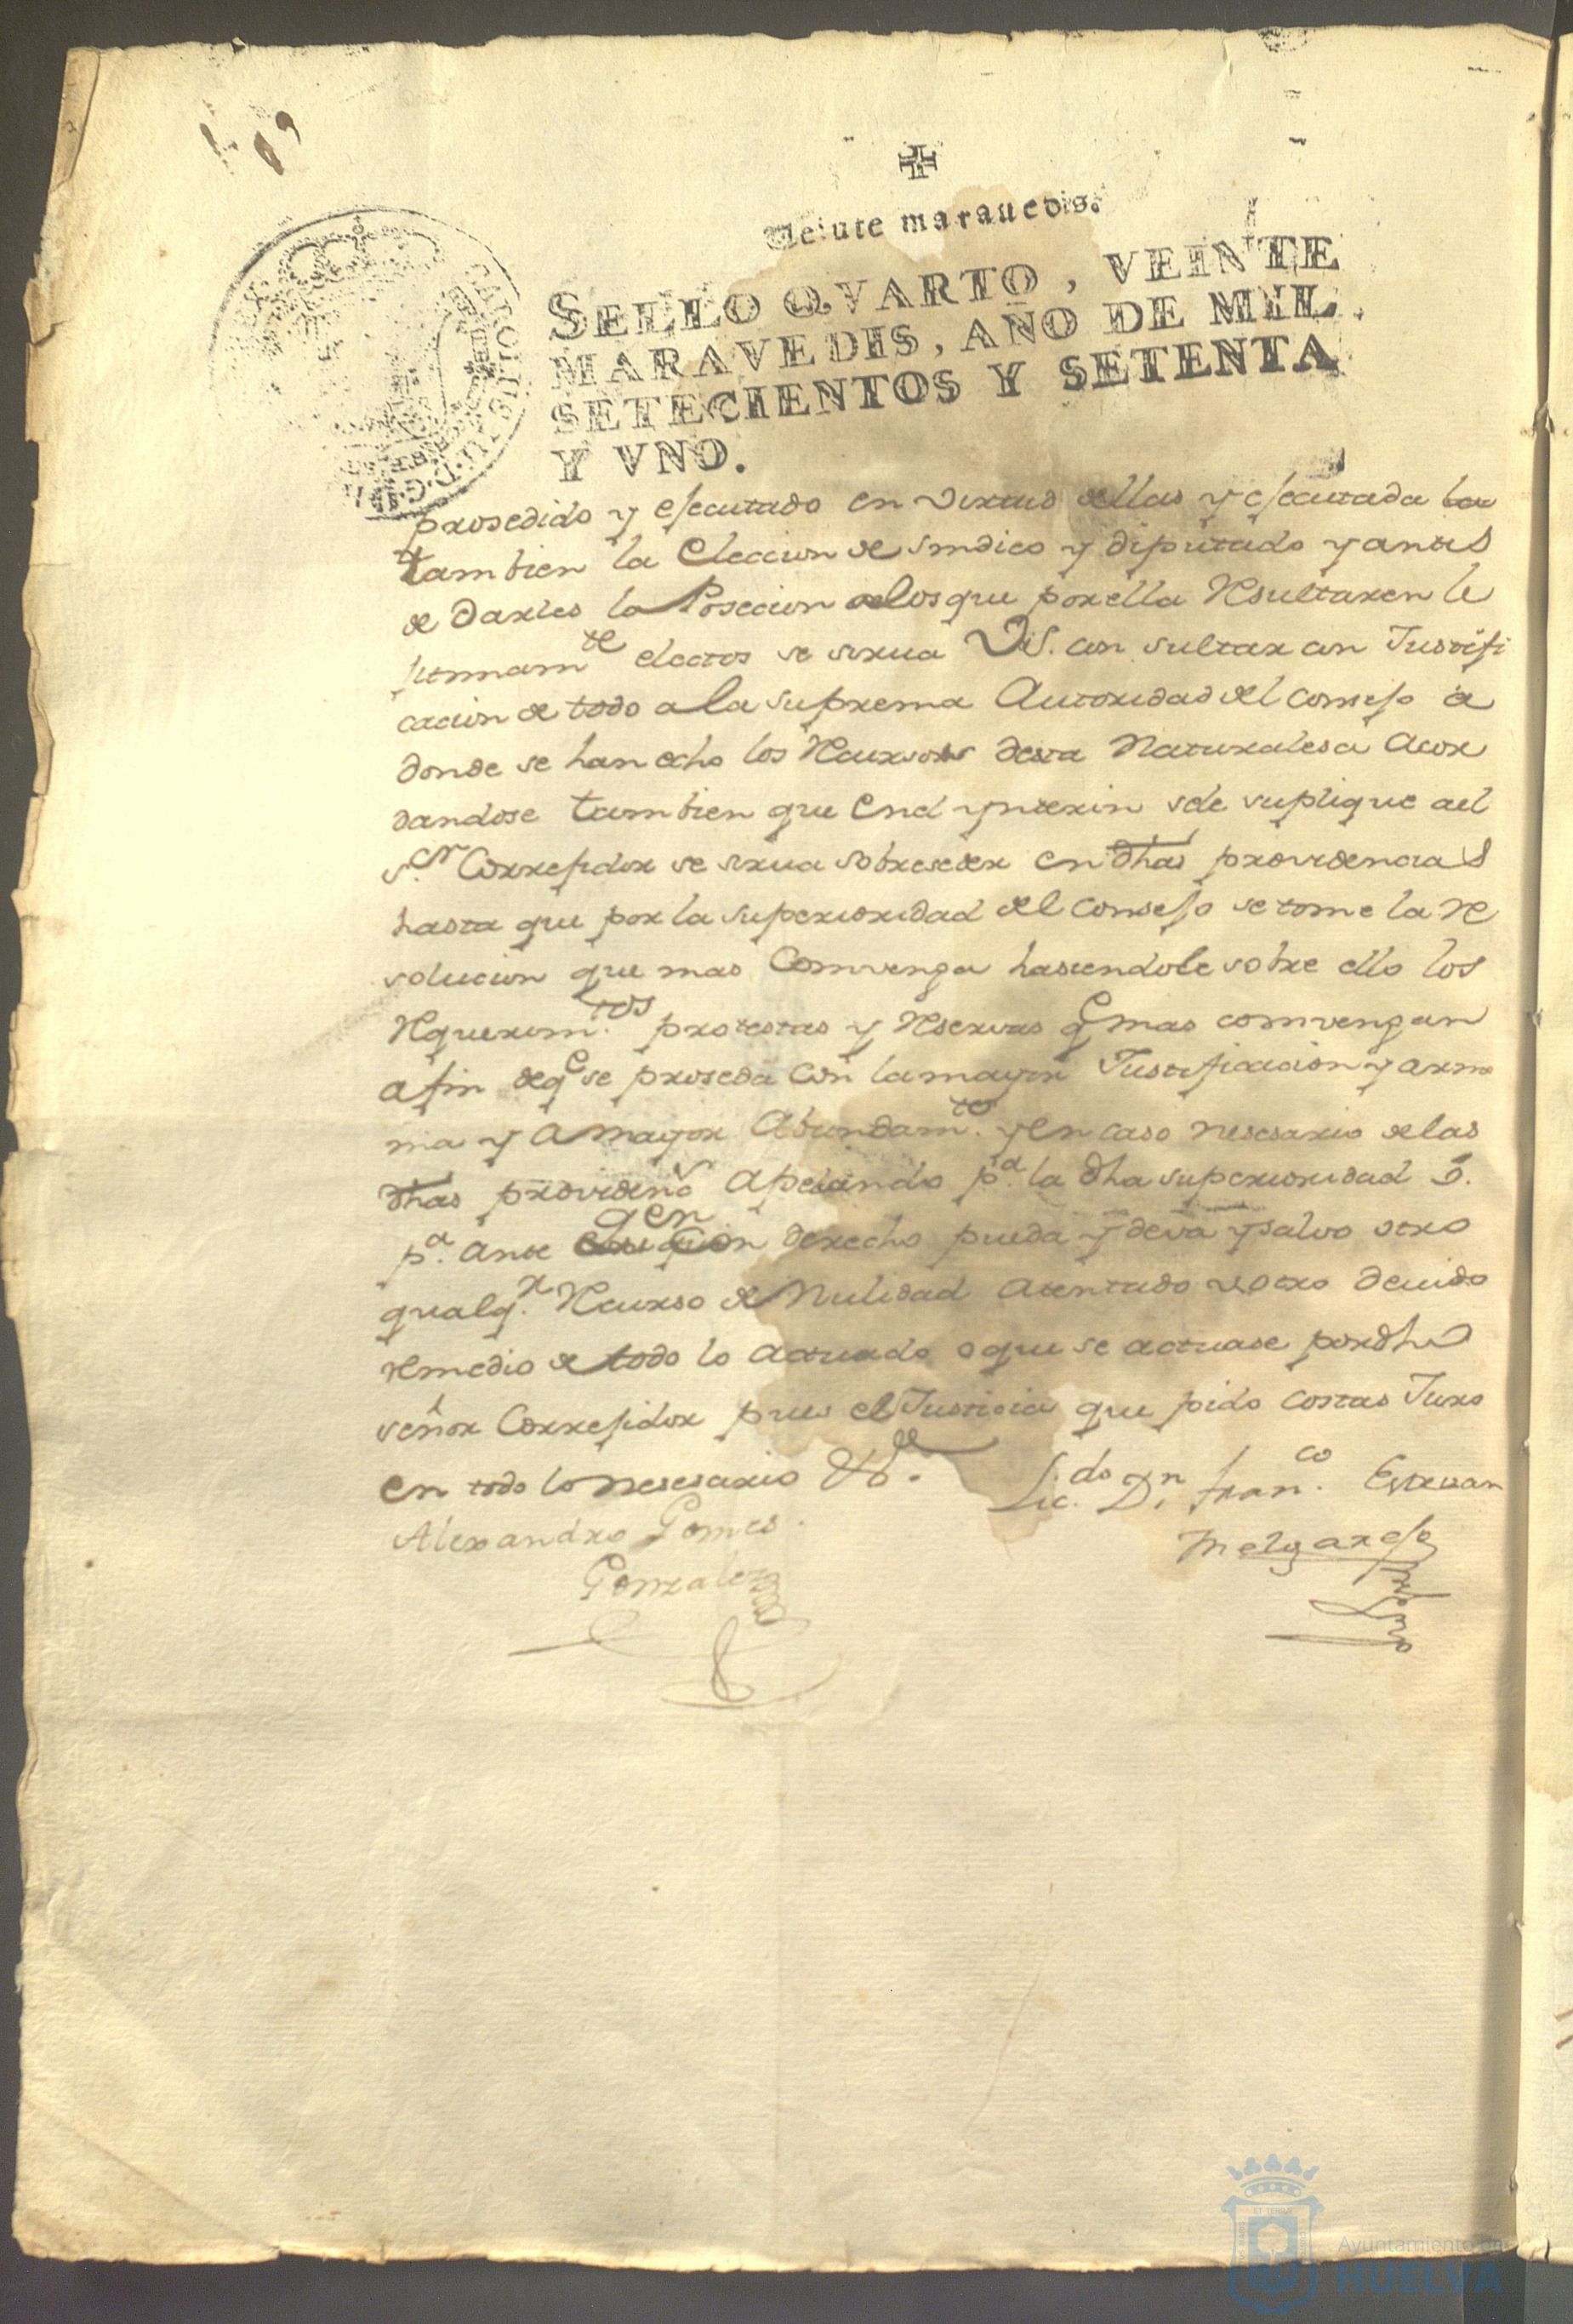 Veinte marauedis.
SELLO QVARTO, VEINTE
MARAVEDIS, AÑO DE MIL
SETECIENTOS Y SETENTA
Y VNO.
prosedido y ejecutado en virtud dellas y ejecutada
tambien la Eleccion de sindico y diputado y antes
de darles la Posecion a los que por ella Resultaren le
electos se sirua VS. con sultar con Justifi
cacion de todo a la suprema Autoridad del Consejo a
donde se han echo los Recursos desta Naturalesa Acor
dandose tambien que End ynterin sele suplique ael
s.or Corregidor se sirua sobreseder en dhas providencias
hasta que por la superioridad del Consejo se tome la Re
solucion que mas Comvenga hasiendole sobre ello los
Requerim.tos protestas y Reservas q mas comvengan
a fin deq se proseda con la mayor Justificacion y armo
nia y a mayor Abundam.to y en caso nesesario de las
dhas providens Apelando p.a la dha superioridad ó
p.a ante qen con derecho pueda y deva y salvo otro
qualq.r Recurso de Nulidad atentado u otro devido
remedio de todo lo actuado o que se actuase por dho
señor Corregidor pues es Justicia que pido costas Juro
en todo lo nesesario &.
Lic.do D.n Fran.co Estevan
Alexandro Gomes
Melgarejo
Gonzalez
Ayuntamiento de
HUELVA